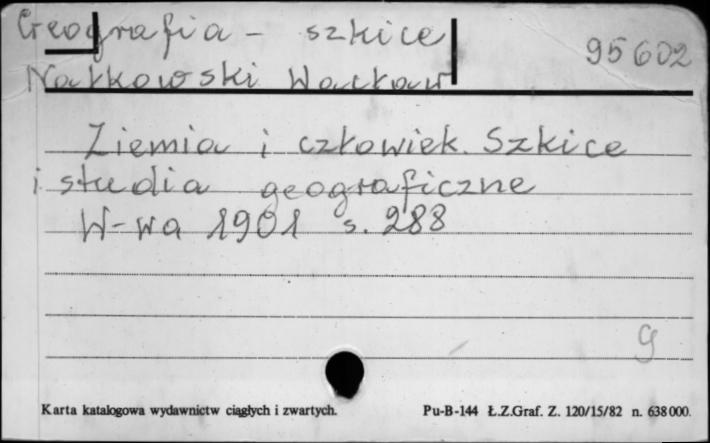 Geografia - szkice
95602
Nałkowski Wacław
Ziemia i człowiek. Szkice
i studia geograficzne
W-wa 1901 s. 288
g
Karta katalogowa wydawnictw ciągłych i zwartych. Pu-B-144 Ł.Z.Graf. Z. 120/15/82 n. 638000.